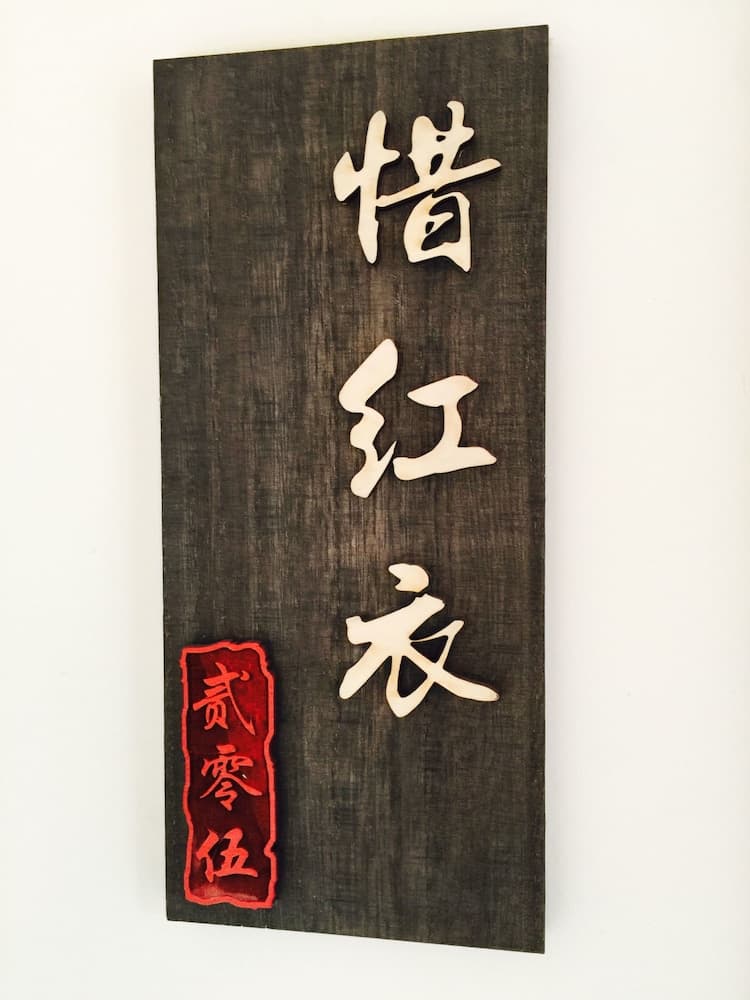 惜红衣
贰零伍